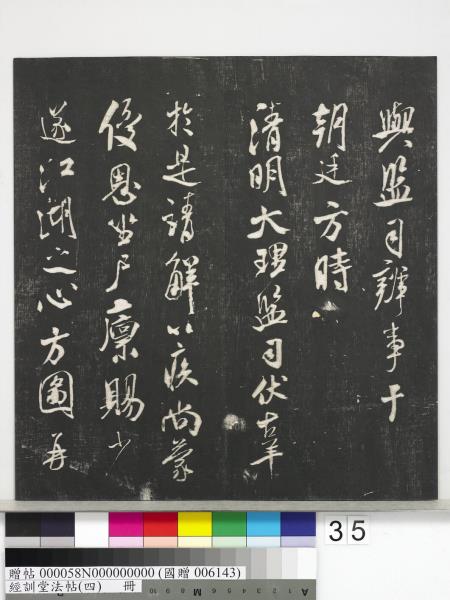 與監司辨事于
朝廷方時
清明大理監司伏辜
於是請解以疾尚蒙
優恩坐尸廩賜少
遂江湖之心方圖再
35
贈帖 000058N000000000 (國贈 006143)
經訓堂法帖(四) 冊